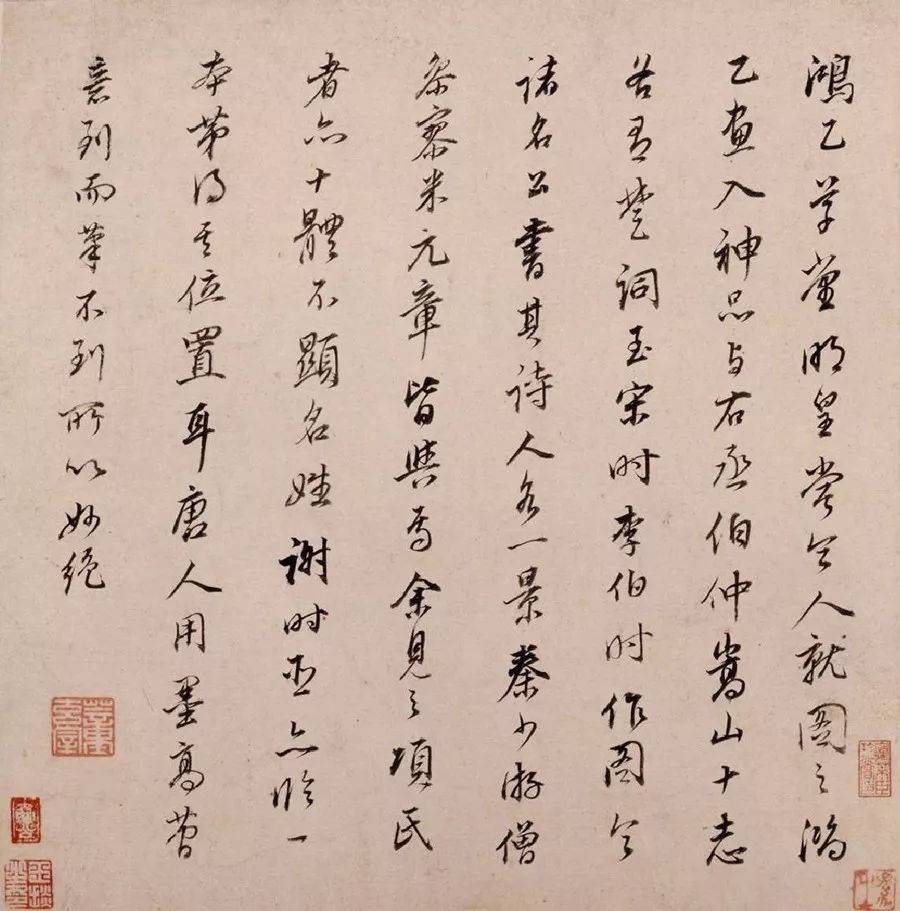 鴻乙草堂明皇嘗令人就圖之鴻
乙畫入神品与右丞伯仲嵩山十志
各有楚詞至宋时李伯时作圖令
諸名公書其詩人各一景秦少游僧
参寥米元章皆與焉余見之項氏
者亦十體不顯名姓謝时臣亦臨一
本第得其位置耳唐人用墨高簡
意到而筆不到所以妙絕